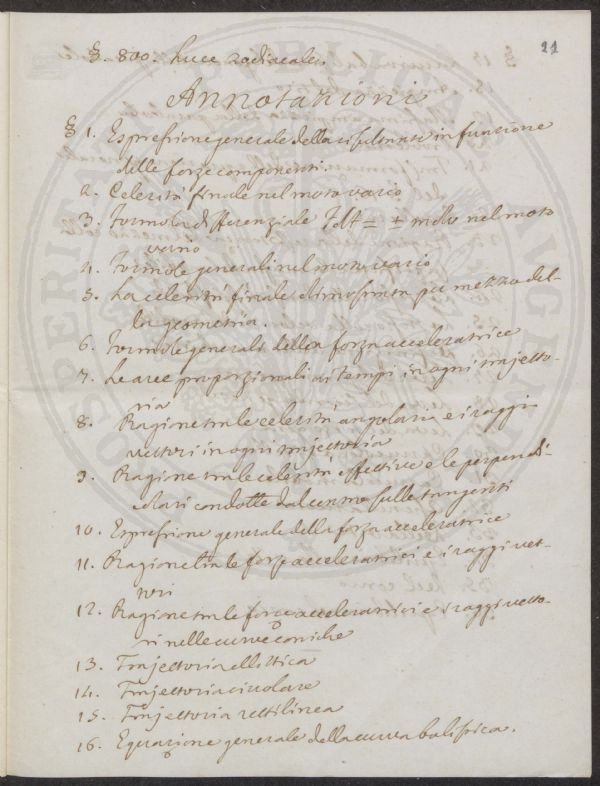 21
§. 800. Luce zodiacale.
Annotazioni
§ 1. Espressione generale della risultante in funzione
delle forze componenti
2. Celerità finale nel moto vario
3. Formola differenziale Fdt = ± mdv nel moto
vario
4. Formole generali nel moto vario
5. La celerità finale dimostrata per mezzo del-
la geometria.
6. Formole generali della forza acceleratrice
7. Le aree proporzionali ai tempi in ogni trajetto-
ria
8. Ragione tra le celerità angolari e i raggi
vettori in ogni trajettoria
9. Ragione tra le celerità effettive e le perpendi-
colari condotte dal centro sulle tangenti
10. Espressione generale della forza acceleratrice
11. Ragione tra le forze acceleratrici e i raggi vet-
tori
12. Ragione tra le forze acceleratrici e i raggi vetto-
ri nelle curve coniche
13. Trajettoria ellittica
14. Trajettoria circolare
15. Trajettoria rettilinea
16. Equazione generale della curva balistica.